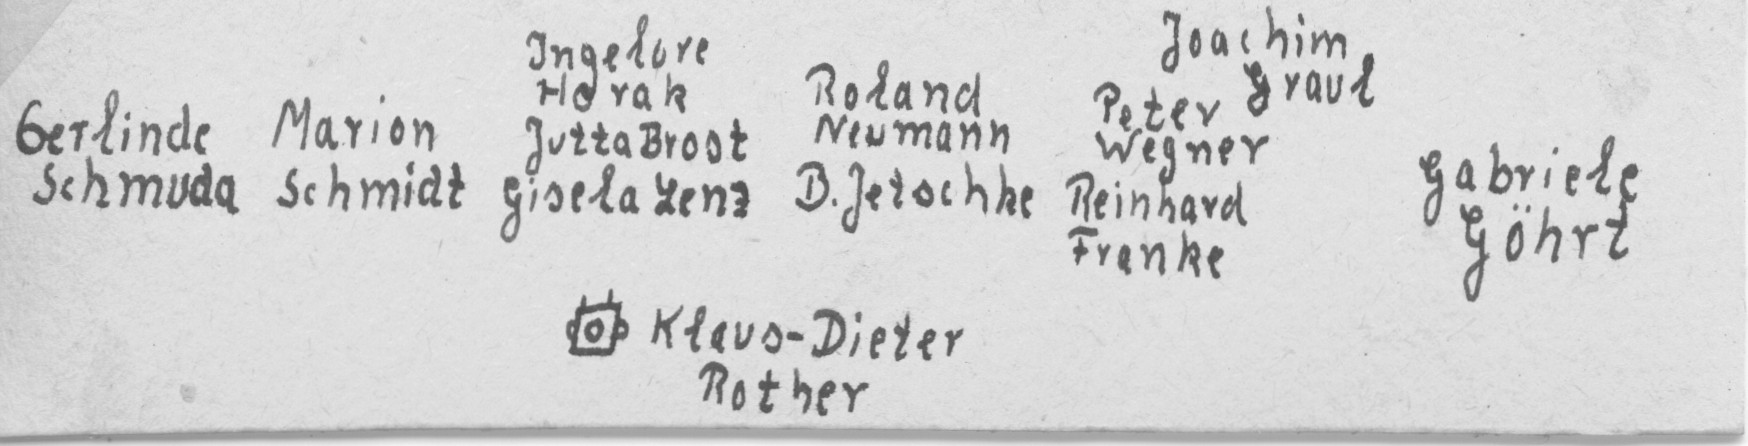 Gerlinde
Schmuda
Marion
Schmidt
Ingelore
Horak
Jutta Brost
Gisela Lenz
Roland
Neumann
B. Jetschke
Joachim
Graul
Peter
Wegner
Reinhard
Franke
Gabriele
Göhrt
Klaus-Dieter
Rother